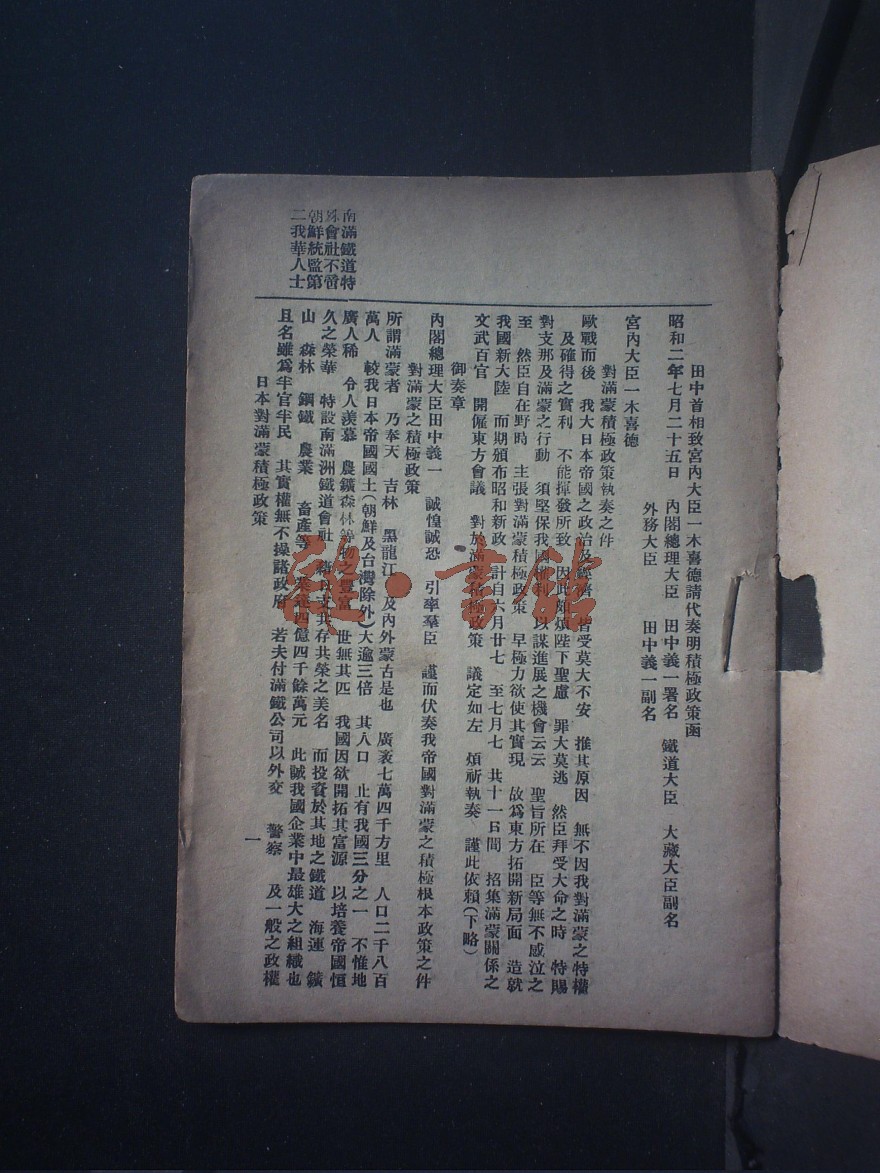 田中首相致宮內大臣一木喜德請代奏明積極政策函
昭和二年七月二十五日　內閣總理大臣　田中義一署名　鐵道大臣　大藏大臣副名
外務大臣　田中義一副名
宮內大臣一木喜德
對滿蒙積極政策執奏之件
歐戰而後　我大日本帝國之政治及經濟　皆受莫大不安　推其原因　無不因我對滿蒙之特權
及確得之實利　不能揮發所致　因此頗煩陛下聖慮　罪大莫逃　然臣拜受大命之時　特賜
對支那及滿蒙之行動　須堅保我國權利　以謀進展之機會云云　聖旨所在　臣等無不感泣之
至　然臣自在野時　主張對滿蒙積極政策　早極力欲使其實現　故爲東方拓開新局面　造就
我國新大陸　而期頒布昭和新政　計自六月廿七　至七月七　共十一日間　招集滿蒙關係之
文武百官　開催東方會議　對於滿蒙積極政策　議定如左　煩祈執奏　謹此依賴(下略)
御奏章
內閣總理大臣田中義一　誠惶誠恐　引率羣臣　謹而伏奏我帝國對滿蒙之積極根本政策之件
對滿蒙之積極政策
所謂滿蒙者　乃奉天　吉林　黑龍江　及內外蒙古是也　廣袤七萬四千方里　人口二千八百
萬人　較我日本帝國國土(朝鮮及台灣除外)大逾三倍　其人口　止有我國三分之一　不惟地
廣人稀　令人羨慕　農鑛森林等物之豐富　世無其匹　我國因欲開拓其富源　以培養帝國恒
久之榮華　特設南滿洲鐵道會社　藉日支共存共榮之美名　而投資於其地之鐵道　海運　鑛
山　森林　鋼鐵　農業　畜產等　達四億四千餘萬元　此誠我國企業中最雄大之組織也
且名雖爲半官半民　其實權無不操諸政府　若夫付滿鐵公司以外交　警察　及一般之政權
南滿鐵道特
殊會社不啻
朝鮮統監第
二我華人士
日本對滿蒙積極政策
一
龍·書館